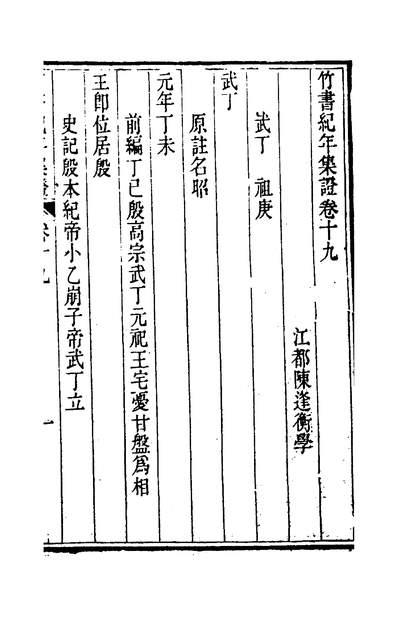 竹書紀年集證卷十九
江都陳逢衡學
武丁　祖庚
武丁
原註名昭
元年丁未
前編丁巳殷高宗武丁元祀王宅憂甘盤爲相
王卽位居殷
史記殷本紀帝小乙崩子帝武丁立
卷十九
一